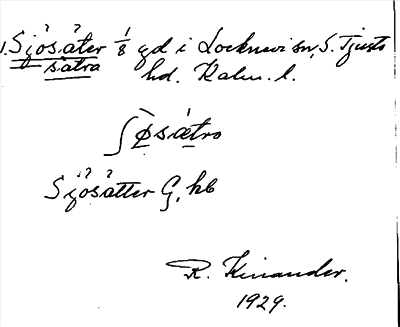 Sjösäter 1/8 gd i Locknevi sn, S. Tjusts
sätra
hd. Kalm. l.
ʃøsætro
Sjösätter G, kb
R. Kinander.
1929.